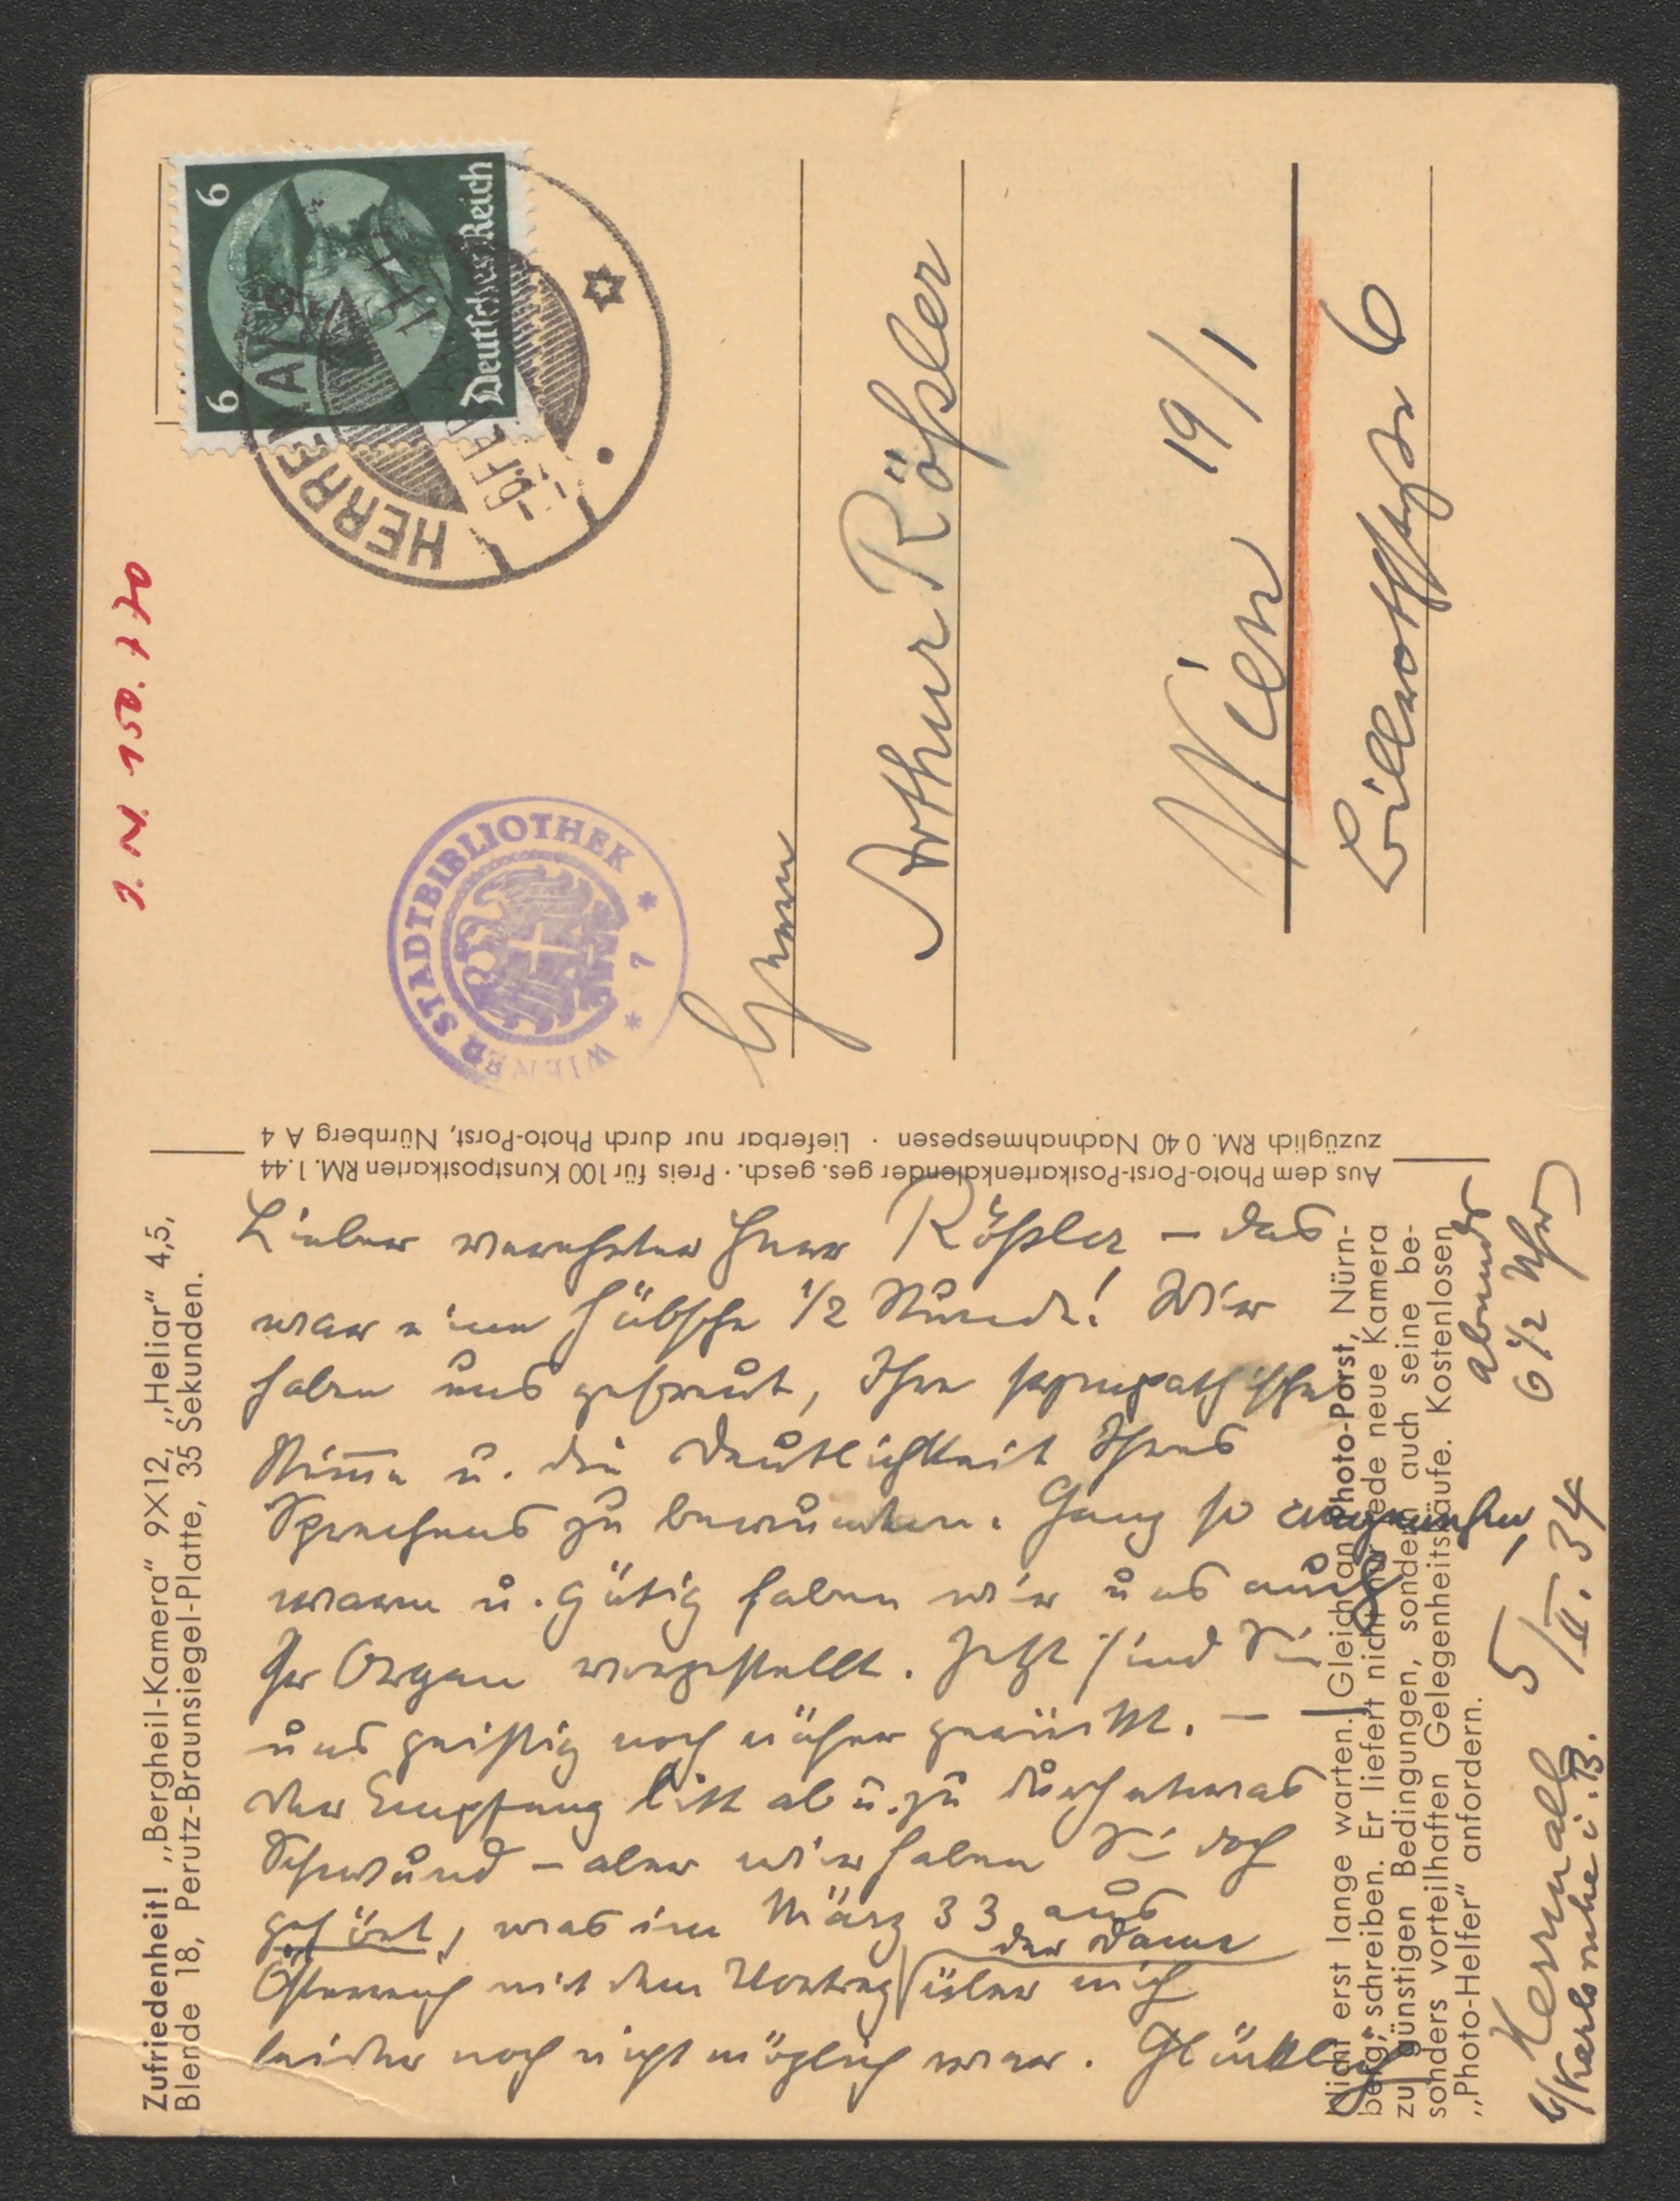 J. N. 150.170
6
6
Deutsches Reich
HERRENALB
WIENER STADTBIBLIOTHEK
* 7 *
Herrn
Arthur Rößler
Wien 19/1
Billrothstr 6
Aus dem Photo-Porst-Postkartenkalender ges. gesch. · Preis für 100 Kunstpostkarten RM. 1.44
zuzüglich RM. 0 40 Nachnahmespesen · Lieferbar nur durch Photo-Porst, Nürnberg A 4
Zufriedenheit! „Bergheil-Kamera“ 9×12, „Heliar“ 4,5,
Blende 18, Perutz-Braunsiegel-Platte, 35 Sekunden.
Nicht erst lange warten. Gleich an Photo-Porst, Nürn-
berg, schreiben. Er liefert nicht nur jede neue Kamera
zu günstigen Bedingungen, sondern auch seine be-
sonders vorteilhaften Gelegenheitskäufe. Kostenlosen
„Photo-Helfer“ anfordern.
Herrnalb 5/II. 34 abends
b/Karlsruhe i. B. 6 1/2 Uhr
Lieber verehrter Herr Rößler – das
war eine hübsche 1/2 Stunde! Wir
haben uns gefreut, Ihre sympathische
Stimme u. die Deutlichkeit Ihres
Sprechens zu bewundern. Ganz so angenehm,
warm u. gütig haben wir uns auch
Ihr Organ vorgestellt. Jetzt sind Sie
uns geistig noch näher gerückt. –
Der Empfang litt ab u. zu durch etwas
Schwund – aber wir haben Sie doch
gehört, was im März 33 aus
Österreich mit dem Vortrag der Dame über mich
leider noch nicht möglich war. Glücklich